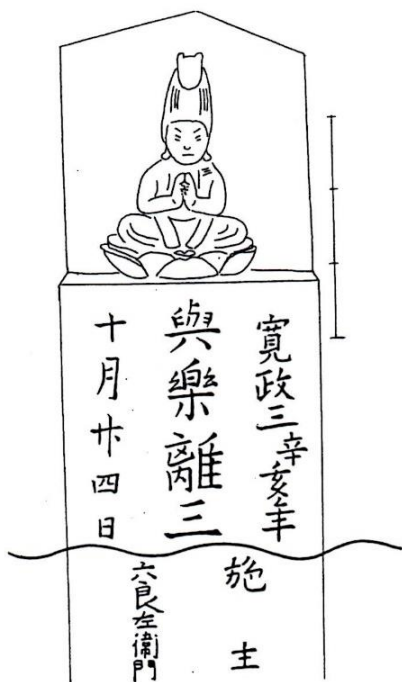 寛政三辛亥年
與樂離三
十月廿四日
施主
六良左衞門